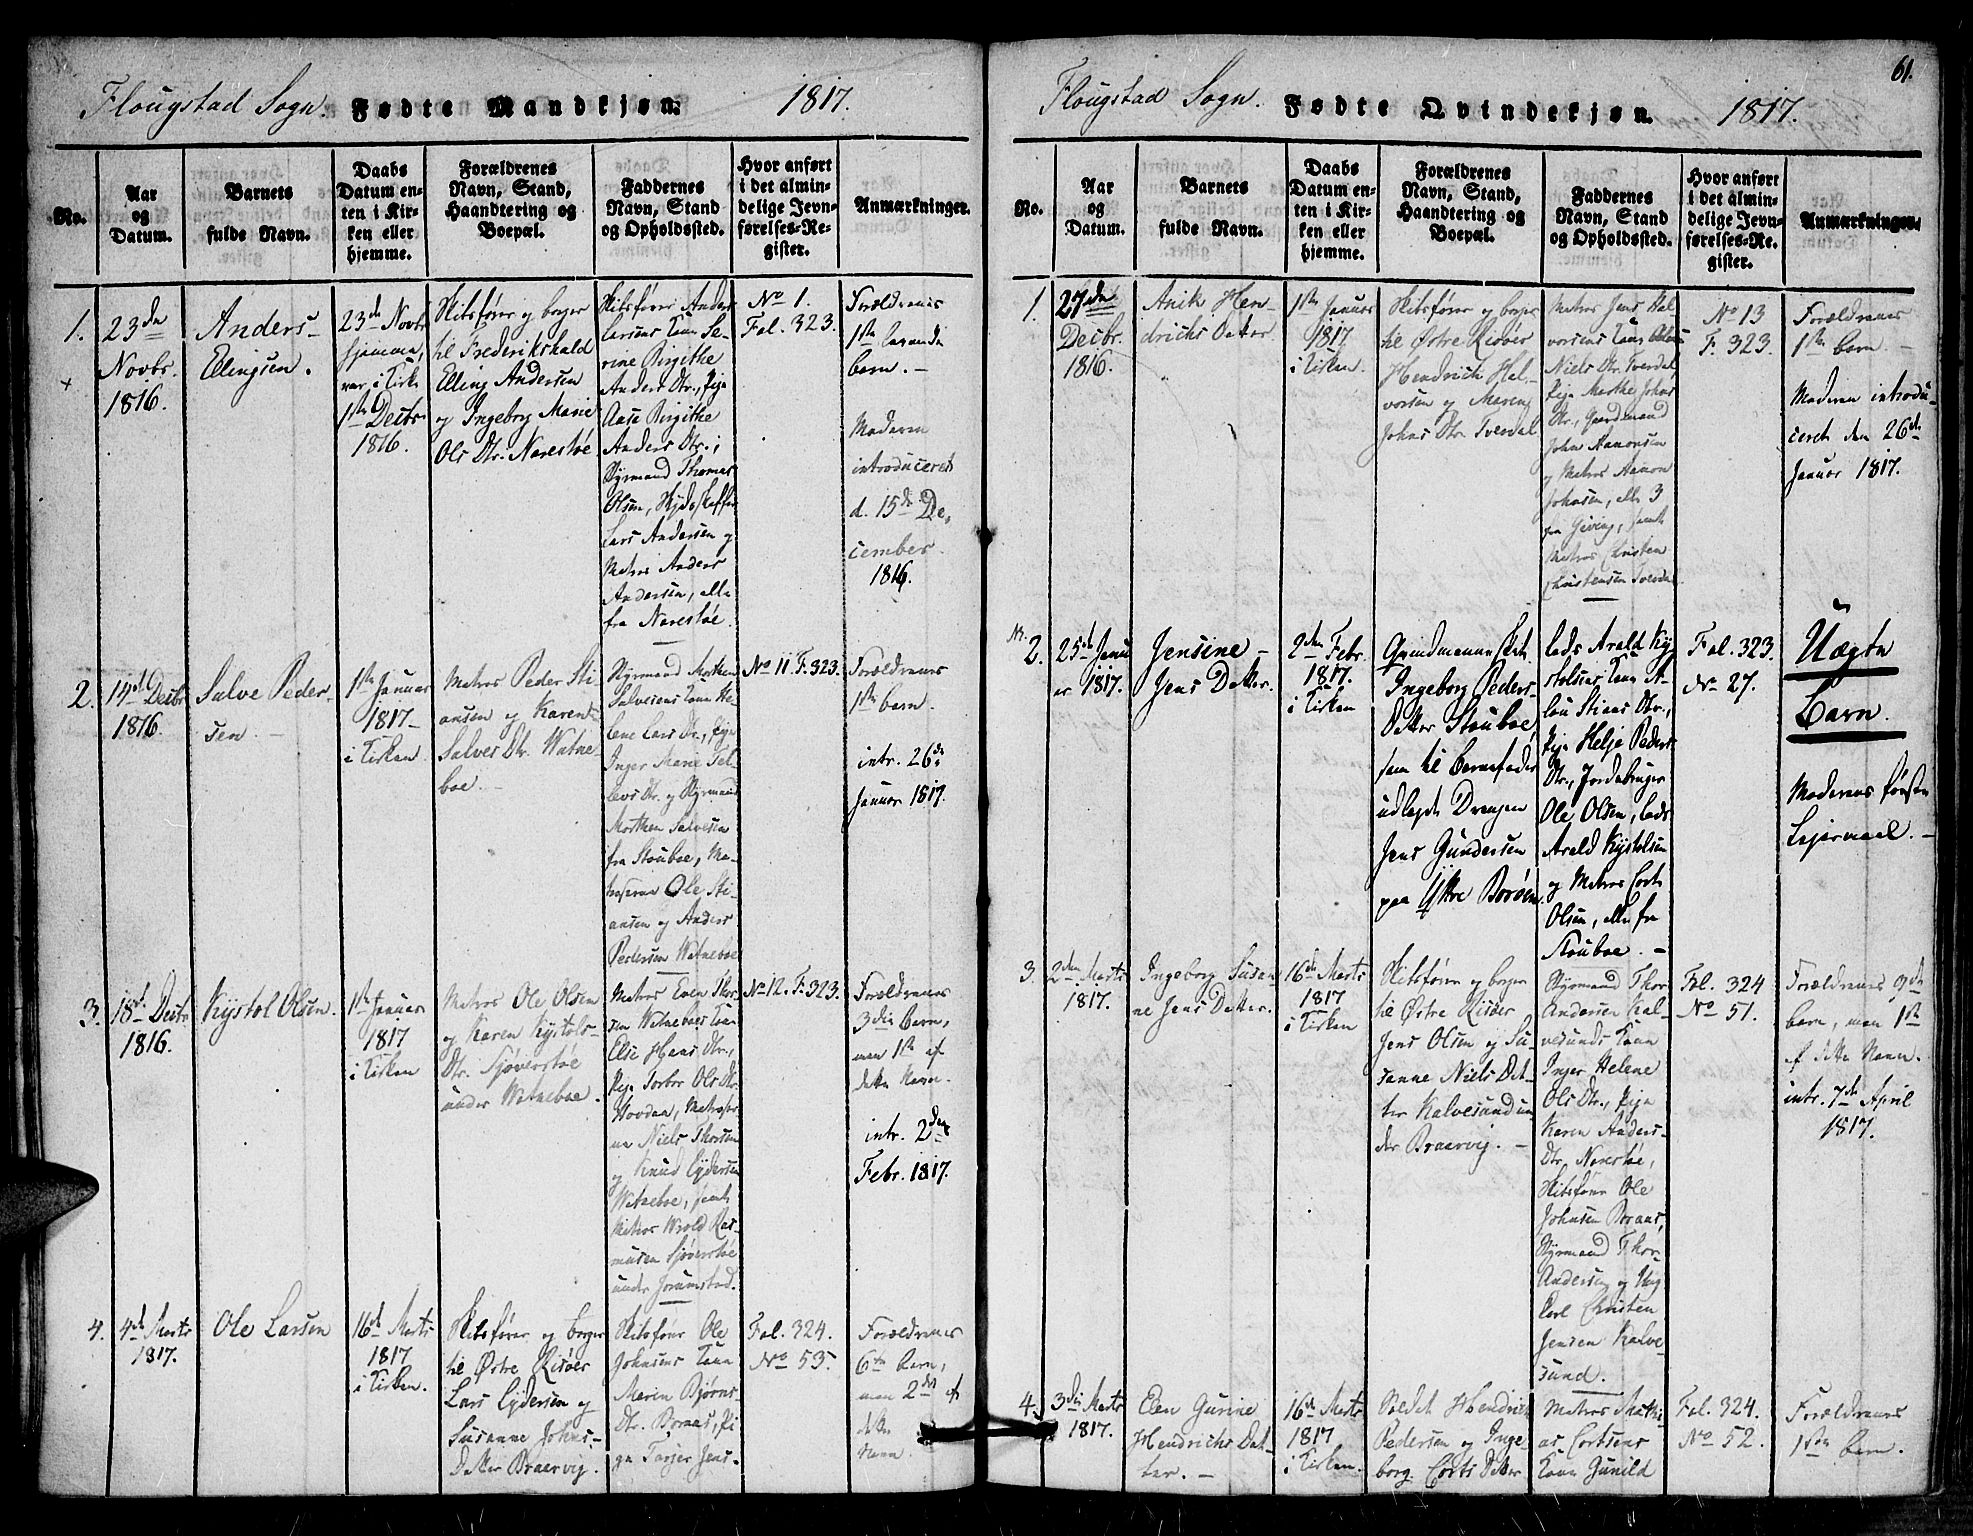 Flougstad Sogn. Fødte Mandkjøn. 1817.
No.
Aar
og
Datum.
Barnets
fulde Navn.
Daabs
Datum en-
ten i Kir-
ken eller
hjemme.
Forældrenes
Navn, Stand,
Haandtering og
Boepæl.
Faddernes
Navn, Stand
og Opholdssted.
Hvor anført
i det almin-
delige Jevn-
førelses-Re-
gister.
Anmærkninger.
1.
23de
Novbr.
1816.
Anders
Ellingsen.
23de Novbr
hjemme,
var i Kirk
1ste Decbr
1816.
Skibsfører og borger
til Frederikshald
Elling Andersen
og Ingeborg Marie
Ols Dtr. Narestøe
Skibsfører Anders
Larsens Kone Se-
rine Birgithe
Anders Dtr., Pige
Aase Birgithe
Anders Dtr.;
Styrmand Thomas
Olsen,
Lars Andersen og
Matros Anders
Andersen, alle
fra Narestøe.
No 1.
Fol. 323.
Forældrenes
1ste levende
barn. -
Moderen
introduceret
d. 15de De-
cember.
1816.
2.
14de Decbr
1816.
Salve Peder-
sen. -
1ste Januar
1817
i Kirken
Matros Peder Sti-
ansen og Karen
Salves Dtr. Watne-
boe. -
Styrmand Morthen
Salvesens Kone He-
lene Lars Dtr., Pige
Inger Marie Tel-
levs Dtr. og Styrmand
Morthen Salvesen
fra Stouboe, Ma-
troserne Ole Sti-
ansen og Anders
Pedersen Watneboe
No 11. F. 323.
Forældrenes
1ste barn.
intr. 26de
Januar 1817.
3.
18de Decbr
1816.
Kystol Olsen.
1ste Januar
1817
i Kirken
Matros Ole Olsen
og Karen Kystols-
Dtr. Sjøverstøe
under Watneboe.
Matros Even Thor-
sen Watneboes Kone
Else Hans Dtr.,
Pige Torbor Ols Dtr.
Hovdan, Matroser-
ne Niels Thorsen
og Knud Eydersen
Watneboe, samt
Matros Wrold Ras-
musen Sjøverstøe
under Jorumstad.
No 12. F. 323.
Forældrenes
3die barn,
men 1ste af
dette Navn.
intr. 2den
Febr. 1817.
4.
4de Marts
1817.
Ole Larsen
16de Marts
1817
i Kirken.
Skibsfører og borger
til Østre Risøer
Lars Eydersen og
Susanne Johns-
Datter Braarvig.
Skibsfører Ole
Johnsens Kone
Maren Bjørns
Dtr. Boraas, Pi-
ge Tarjer Jens-
Fol. 324.
No 53.
Forældrenes
6te barn,
men 2det af
dette
Navn
61.
Flougstad Sogn. Fødte Qvindekjøn. 1817.
No.
Aar
og
Datum.
Barnets
fulde Navn.
Daabs
Datum en-
ten i Kir-
ken eller
hjemme.
Forældrenes
Navn, Stand,
Haandtering og
Boepæl.
Faddernes
Navn, Stand
og Opholdssted.
Hvor anført
i det almin-
delige Jevn-
førelses-Re-
gister.
Anmærkninger.
1.
27de
Decbr.
1816.
Anik Hen-
drichs Datter
1ste Januar
1817
i Kirken.
Skibsfører og borger
til Østre Risøer
Hendrich Hal-
vorsen og Maren
Johns Dtr. Tverdal
Matros Jens Hal-
vorsens Kone
Niels Dtr. Tverdal,
Pige Marthe Johns
Dtr., Gaardmand
John Aanonsen
og Matros Aanon
Johnsen, alle 3
fra Giving, samt
Matros Christen
Christensen Tverdal
No 13
F. 323.
Forældrenes
1ste barn. -
Moderen introdu-
ceret den 26de
Januar 1817.
Nr.
2.
25de Janu
ar 1817.
Jensine
Jens Datter.
2den Febr.
1817.
i Kirken
Ingeborg Peders-
Datter Stouboe,
som til Barnefader
udlagde Drengen
Jens Gundersen
paa Ytre Borøen.
Lods Arald Ky-
stolsens Kone A-
lou Stians Dtr.,
Pige Helje Peders
Dtr., Jordebruger
Ole Olsen, Lods
Arald Kystolsen
og Matros Cort
Olsen, alle fra
Stouboe. -
Fol. 323.
No 27.
Uægte
Barn.
Moderens første
Lejermaal. -
3.
2den Marts
1817.
Ingeborg Susan-
ne Jens Datter.
16de Marts
1817
i Kirken
Skibsfører og borger
til Østre Risøer
Jens Olsen og Su-
sanne Niels Dat-
ter Kalvesund un-
der Braarvig. -
Styrmand Thor
Andersen Kal-
vesunds Kone
Inger Helene
Ols Dtr., Pige
Karen Anders-
Dtr. Narestøe,
Skibsfører Ole
Johnsen Boraas,
Styrmand Thor
Andersen og Ung-
Karl Christen
Jensen Kalve-
sund.
Fol. 324
No 51.
Forældrenes 9de
barn, men 1ste
af dette Navn.
intr. 7de April
1817.
4.
3die Marts
1817.
Elen Gurine
Hendrichs Dat-
ter. -
16de Marts
1817
i Kirken.
Soldat Hendrich
Pedersen og Inge-
borg Corts Datter
Matros Mathi-
as Cortsens
Kone Gunild
Fol. 324.
No 52.
Forældrenes
1ste barn.